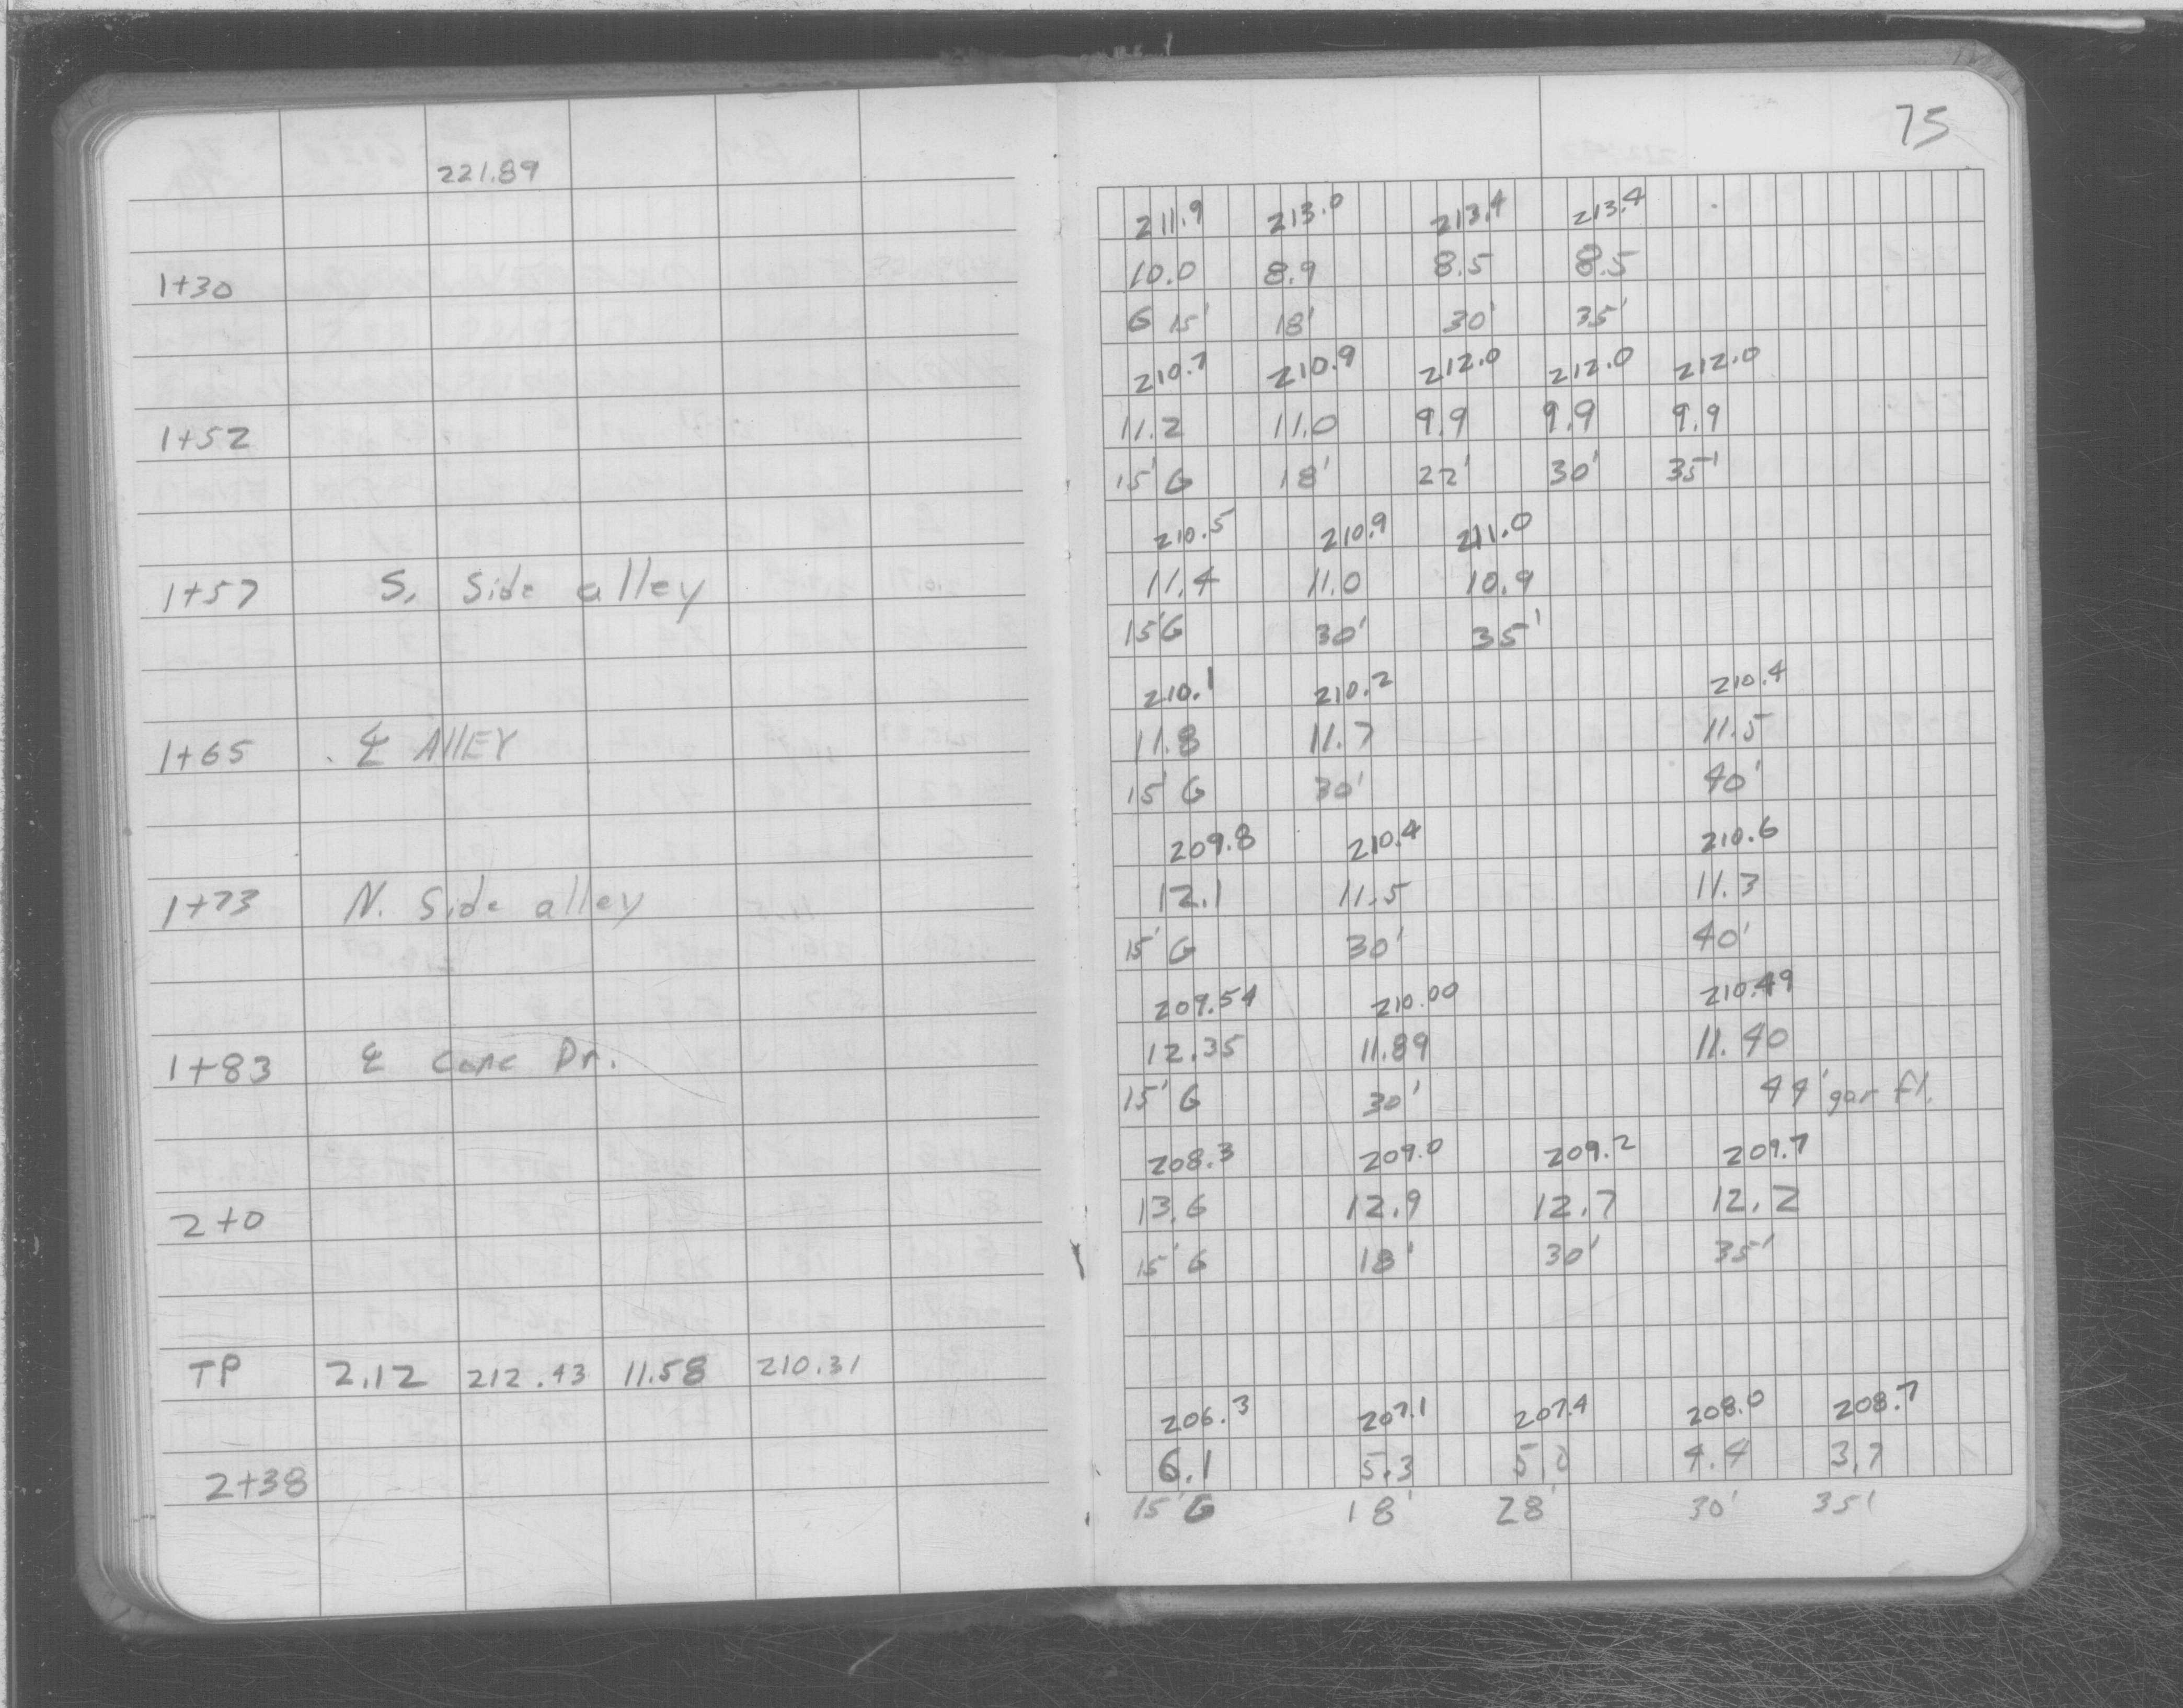 221.89
1+30
1+52
1+57 S. Side alley
1+65 ℄ AllEY
1+73 N. Side alley
1+83 ℄ Conc Dr.
2+0
TP 2.12 212.43 11.58 210.31
2+38
75
211.9 213.0 213.4 213.4
10.0 8.9 8.5 8.5
G 15' 18' 30' 35'
210.7 210.9 212.0 212.0 212.0
11.2 11.0 9.9 9.9 9.9
15' G 18' 22' 30' 35'
210.5 210.9 211.0
11.4 11.0 10.9
15' G 30' 35'
210.1 210.2 210.4
11.8 11.7 11.5
15' G 30' 40'
209.8 210.4 210.6
12.1 11.5 11.3
15' G 30' 40'
209.54 210.00 210.49
12.35 11.89 11.40
15' G 30' 44' gar fl.
208.3 209.0 209.2 209.7
13.6 12.9 12.7 12.2
15' G 18' 30' 35'
206.3 207.1 207.4 208.0 208.7
6.1 5.3 5.0 4.4 3.7
15' G 18' 28' 30' 35'